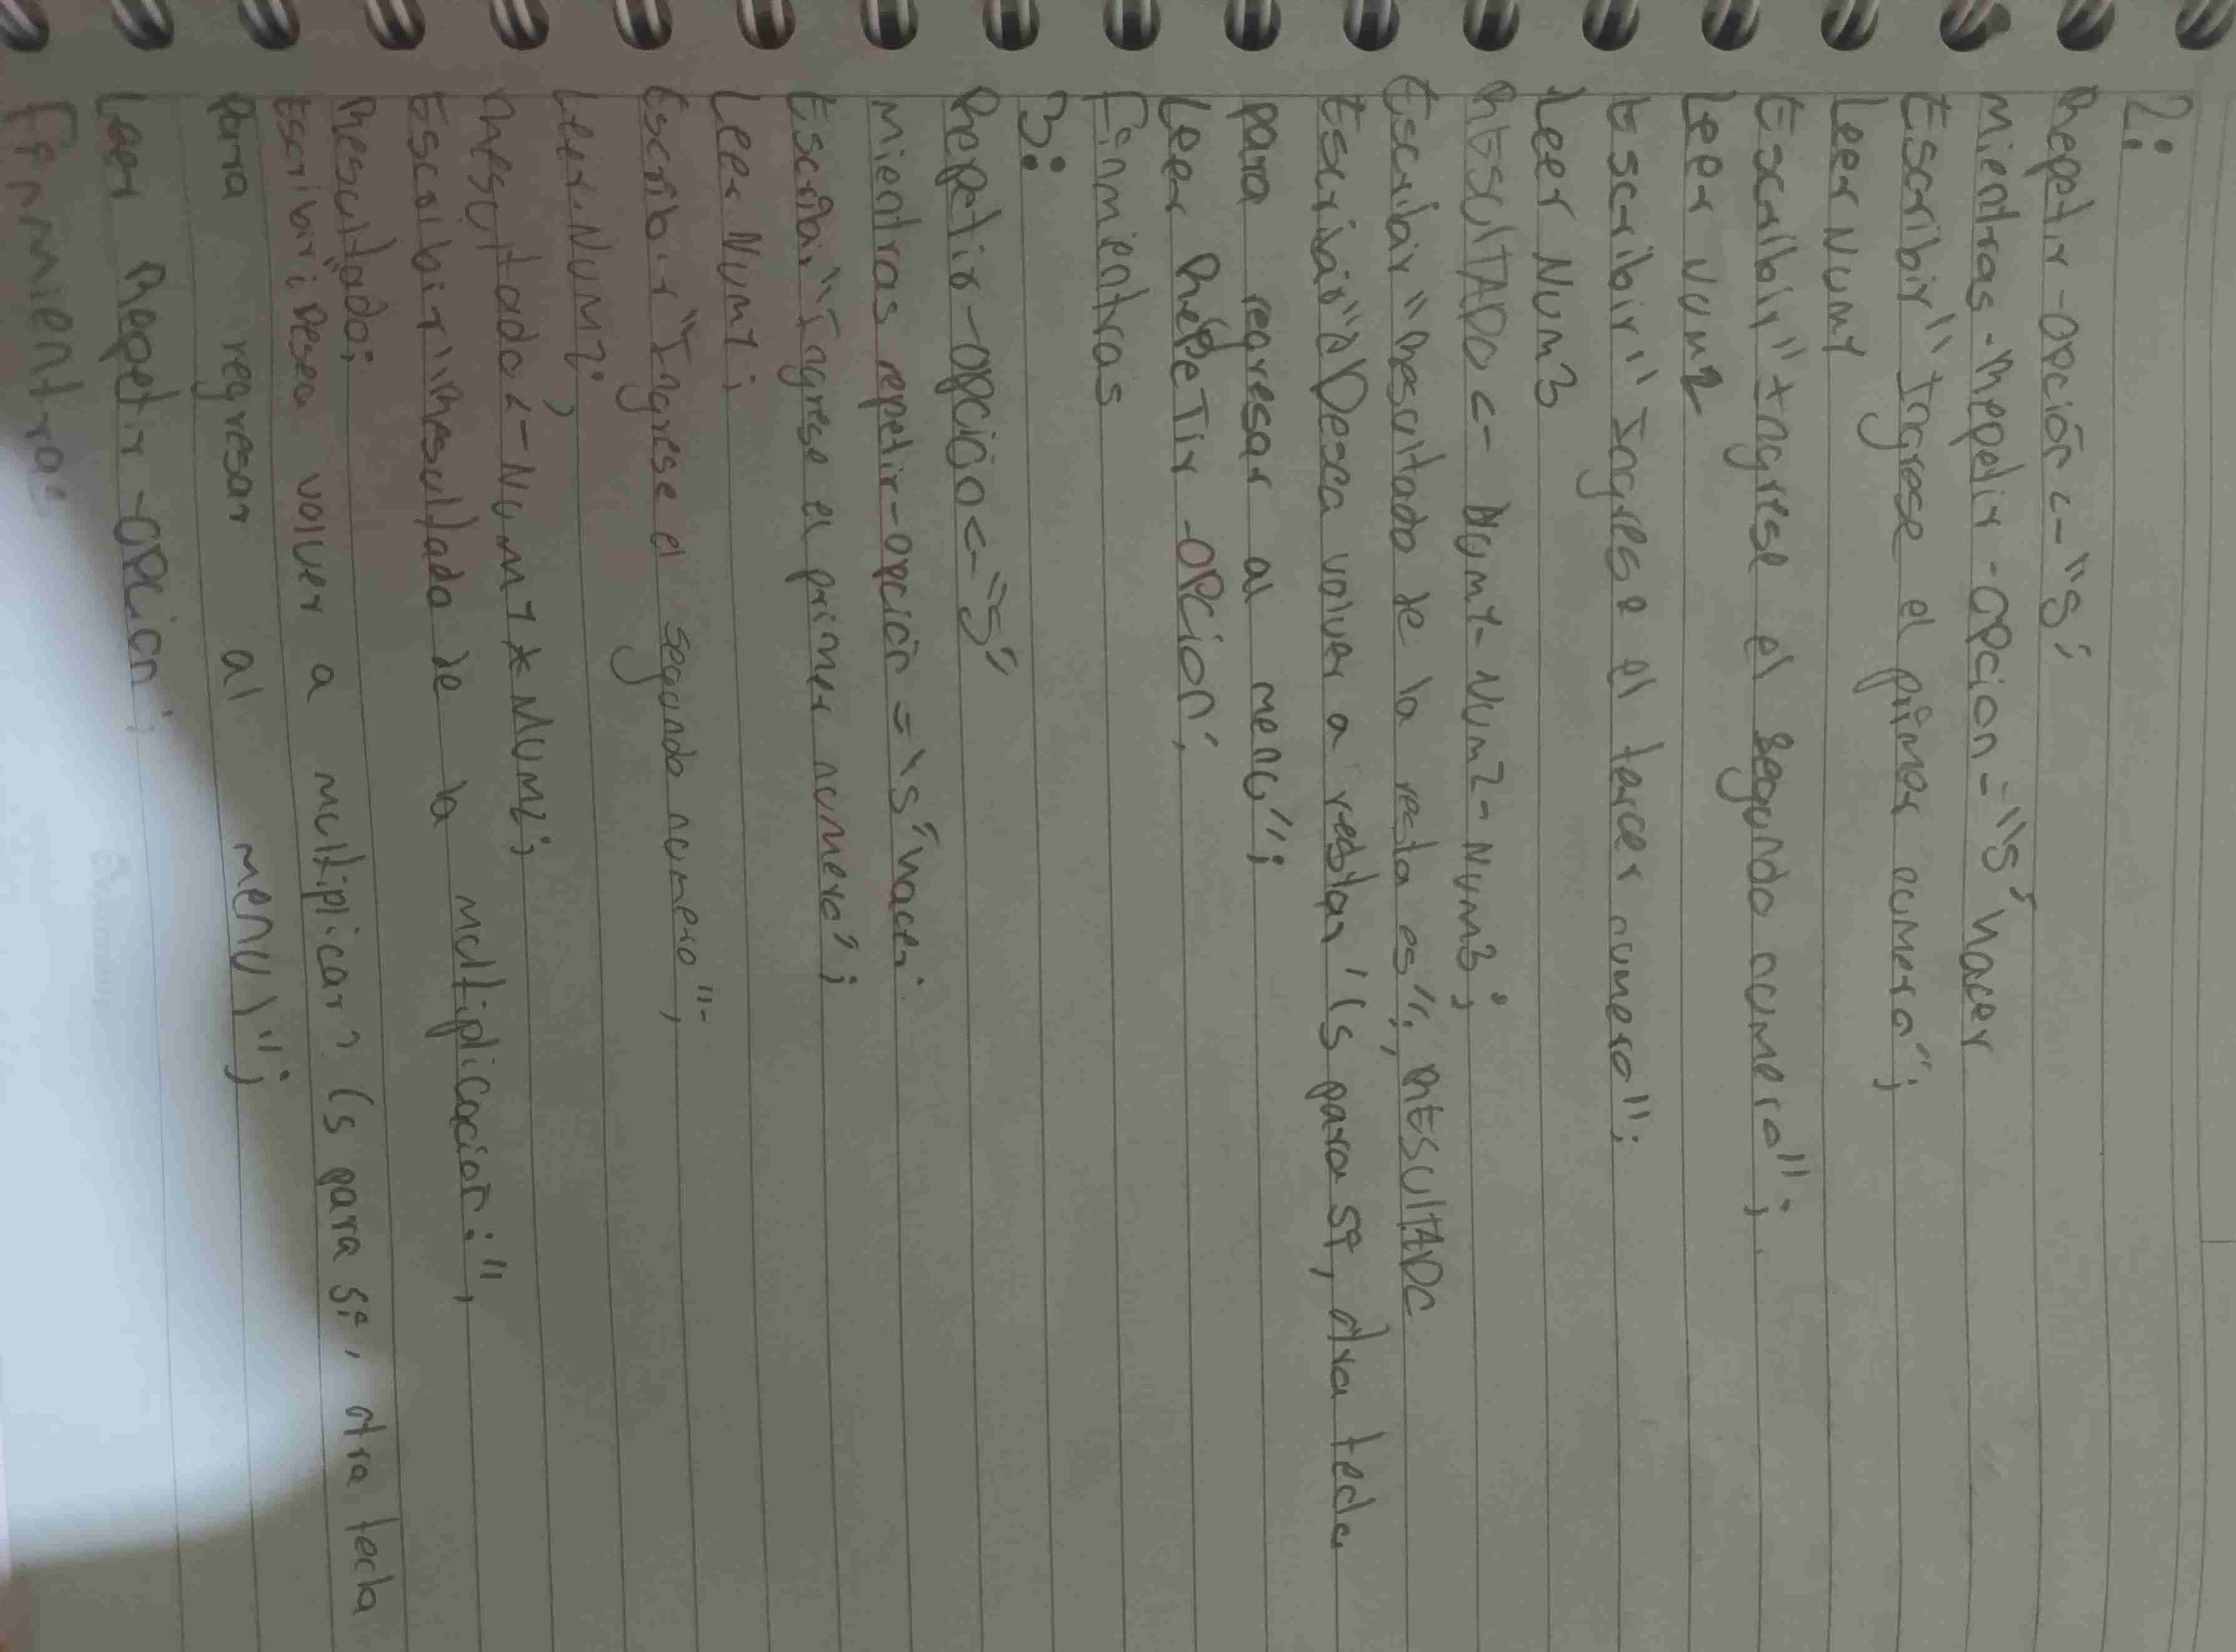 2:
Repetir-opción <- "s";
mientras-repetir-opcion = "s" hacer
Escribir "Ingrese el primer numero";
Leer Num1
Escribir "Ingrese el segundo numero";
Leer Num2
Escribir "Ingrese el tercer numero";
Leer Num3
RESULTADO <- Num1-Num2-Num3;
Escribir "Resultado de la resta es"; RESULTADO
Escribir "¿Desea volver a restar" (s para si, otra tecla
para regresar al menu";
Leer RepeTir-opcion;
Finmientras
3:
Repetir-opcion <- "s"
Mientras repetir-opcion = "s" hacer
Escribir "Ingrese el primer numero";
Leer Num1;
Escribir "Ingrese el segundo numero";
Leer Num2;
Resultado <- Num1 * Num2;
Escribir "Resultado de la multiplicacion:",
Resultado;
Escribir "¿Desea volver a multiplicar? (s para si, otra tecla
para regresar al menu)";
Leer Repetir-opcion;
Finmientras